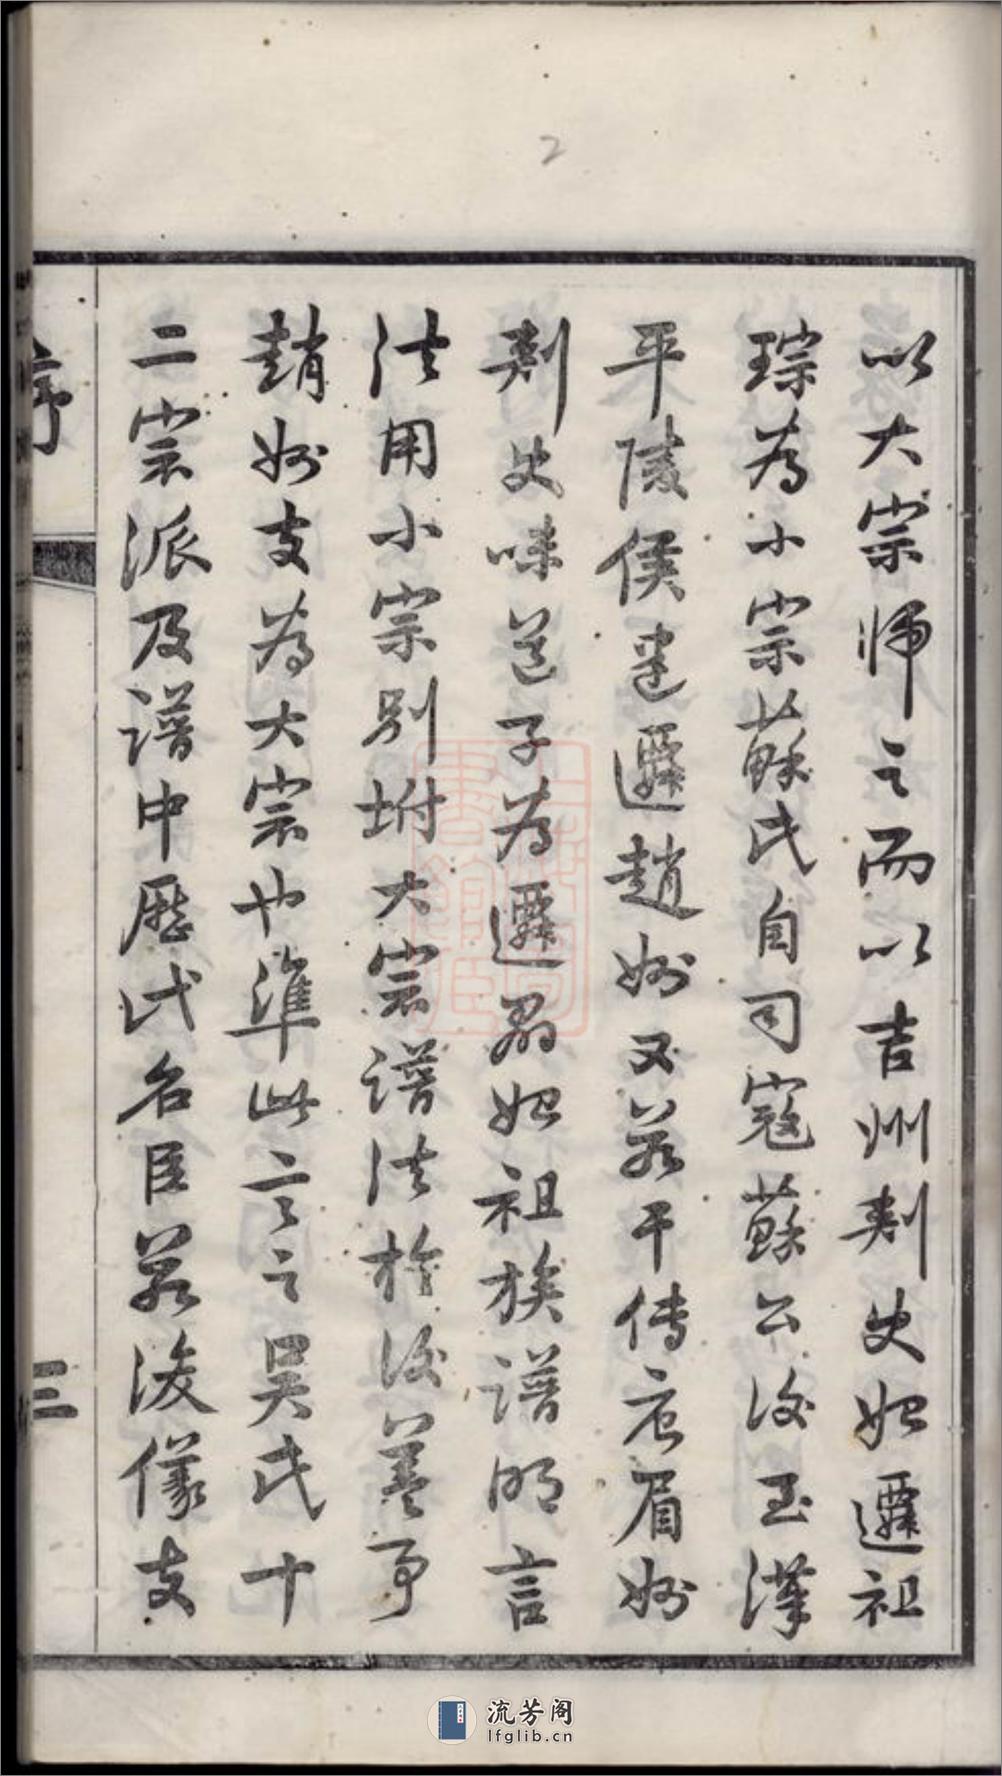 2
以大宗師之而以吉州刺史始遷祖
琮為小宗蘇氏自司寇蘇公後至漢
平陵侯建遷趙州又若干傳唐眉州
刺史味道子為遷眉始祖族譜明言
法用小宗別坿大宗譜法於後蓋予
趙州支為大宗也準此言之吳氏十
二宗派及譜中歷代名臣若浚儀支
序
三
流芳阁
lfglib.cn